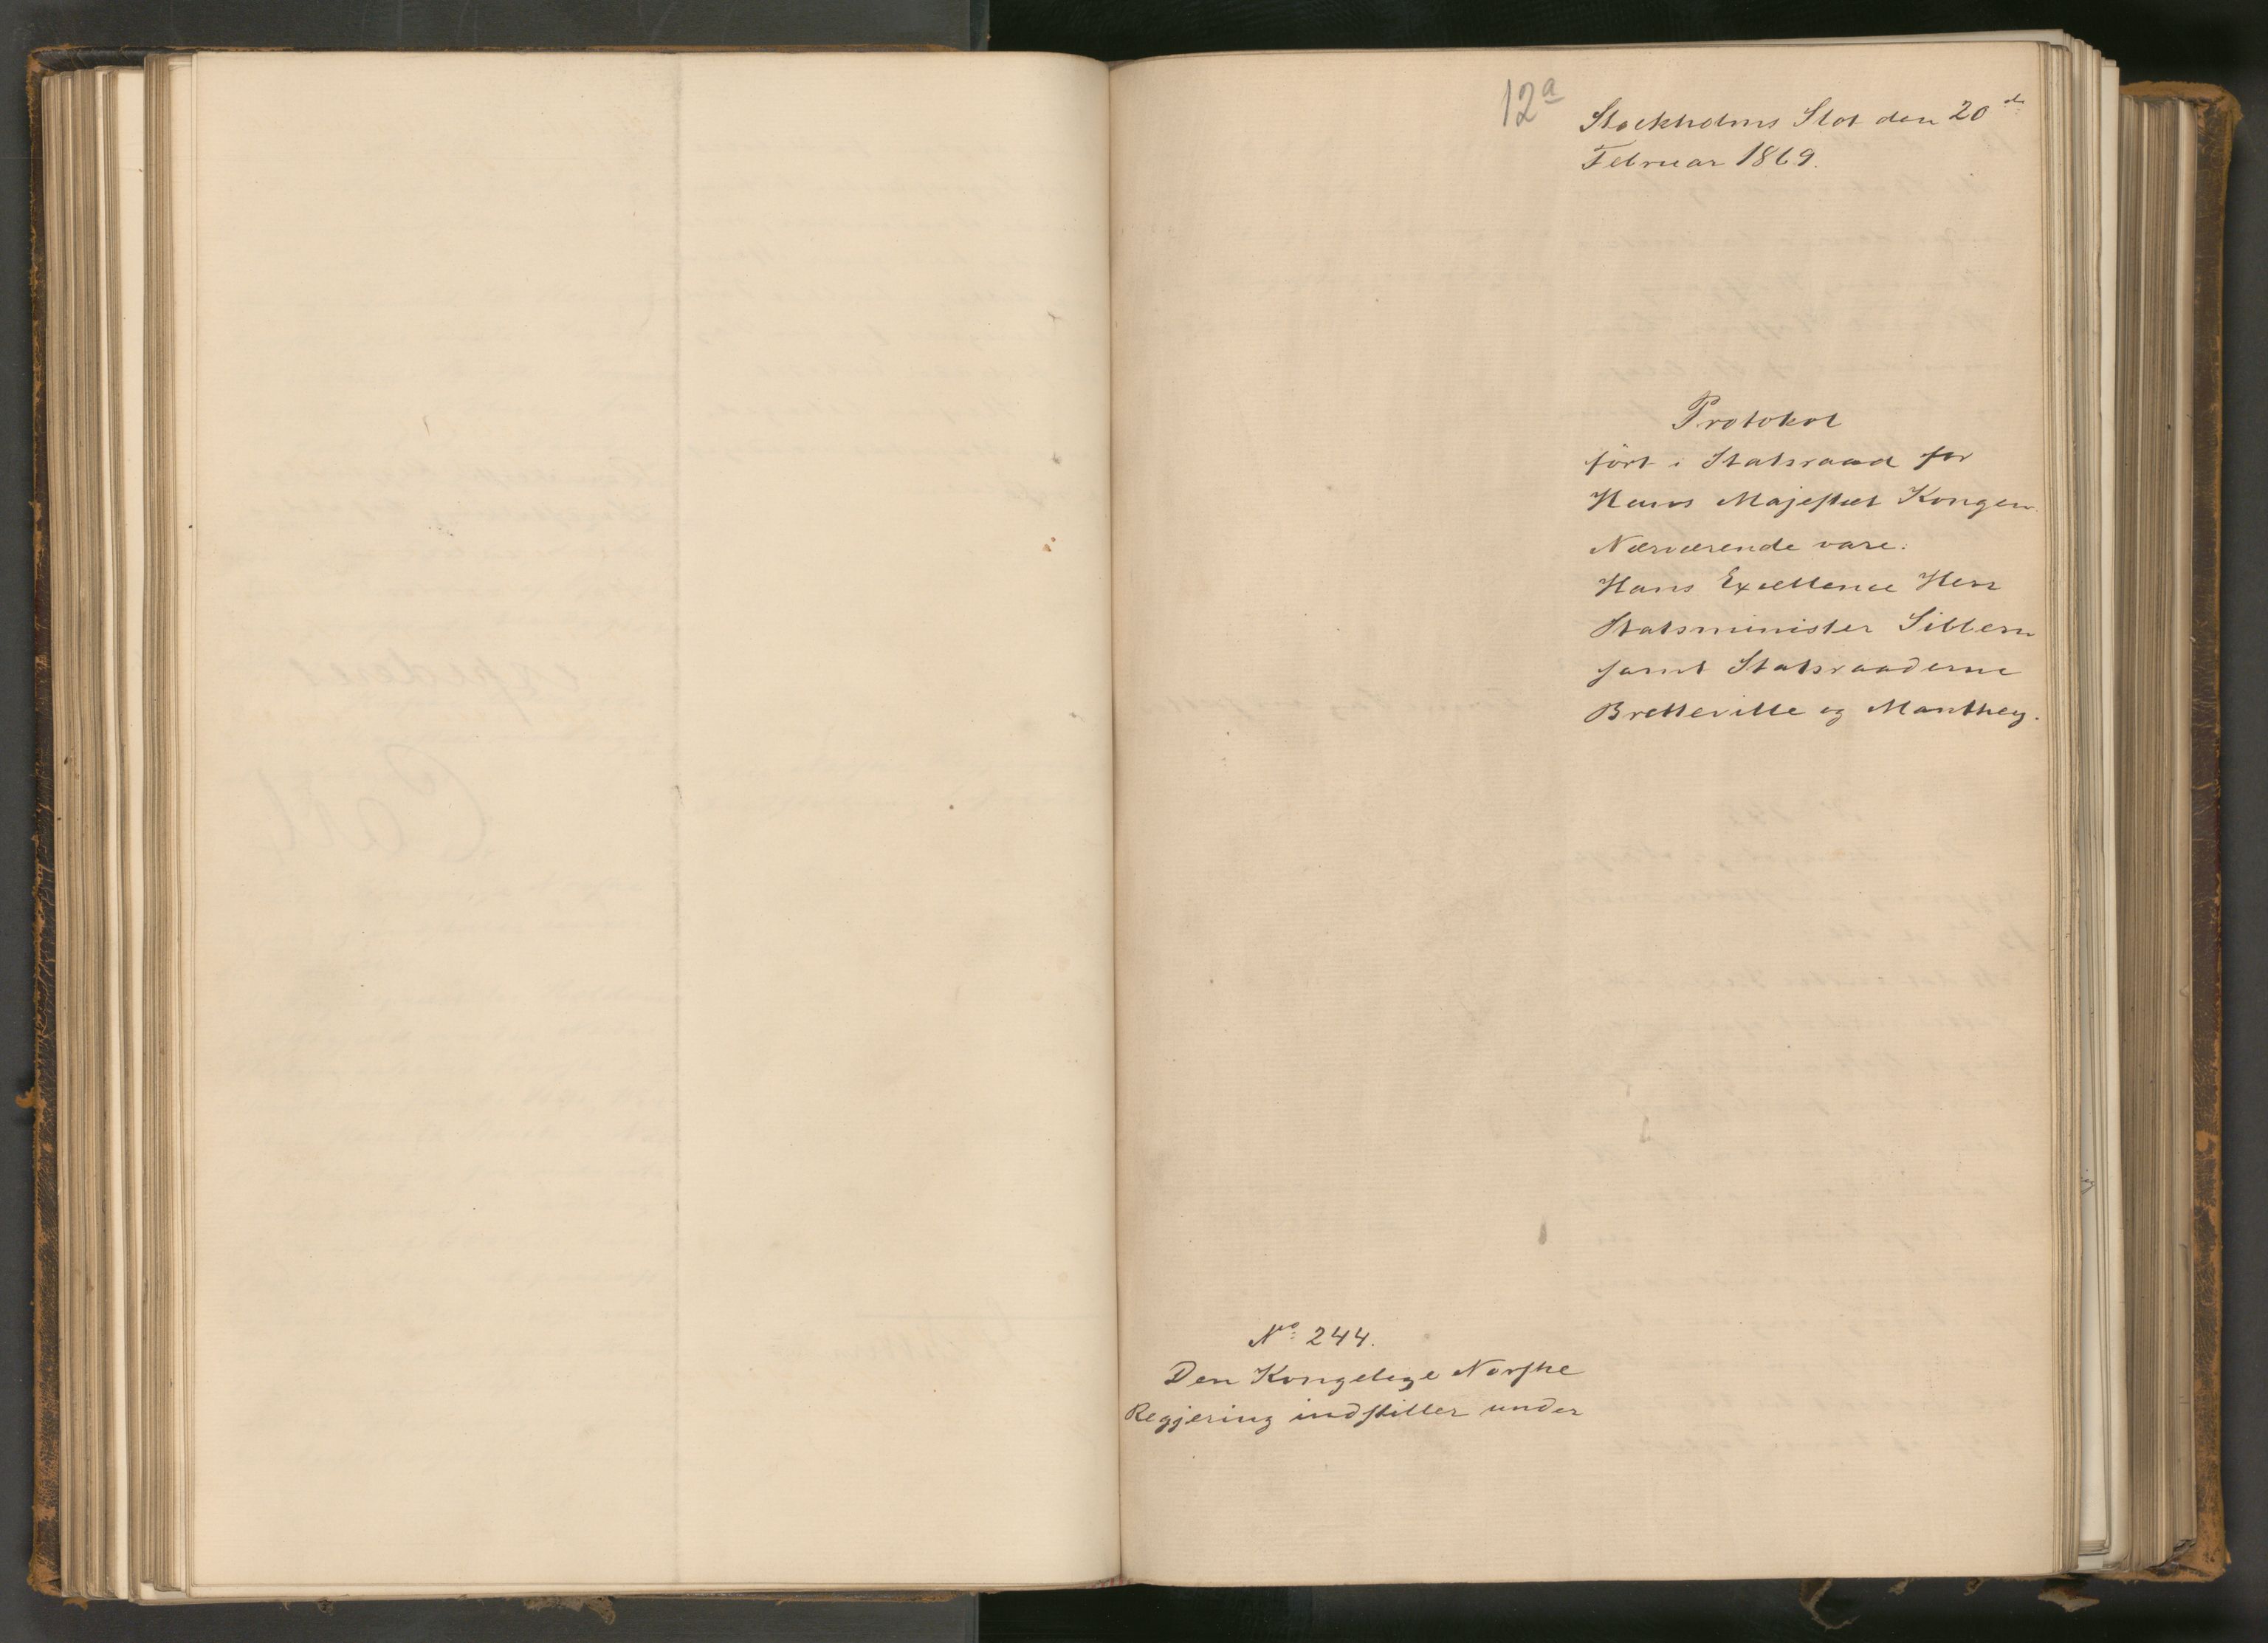 12a
Stockholms Slot den 20de
Februar 1869.
Protokol
ført i Statsraad for
Hans Majestæt Kongen.
Nærværende vare:
Hans Excellence Herr
Statsminister Sibbern
samt Statsraaderne
Bretteville og Manthey.
No 244.
Den Kongelige Norske
Regjering indstiller under